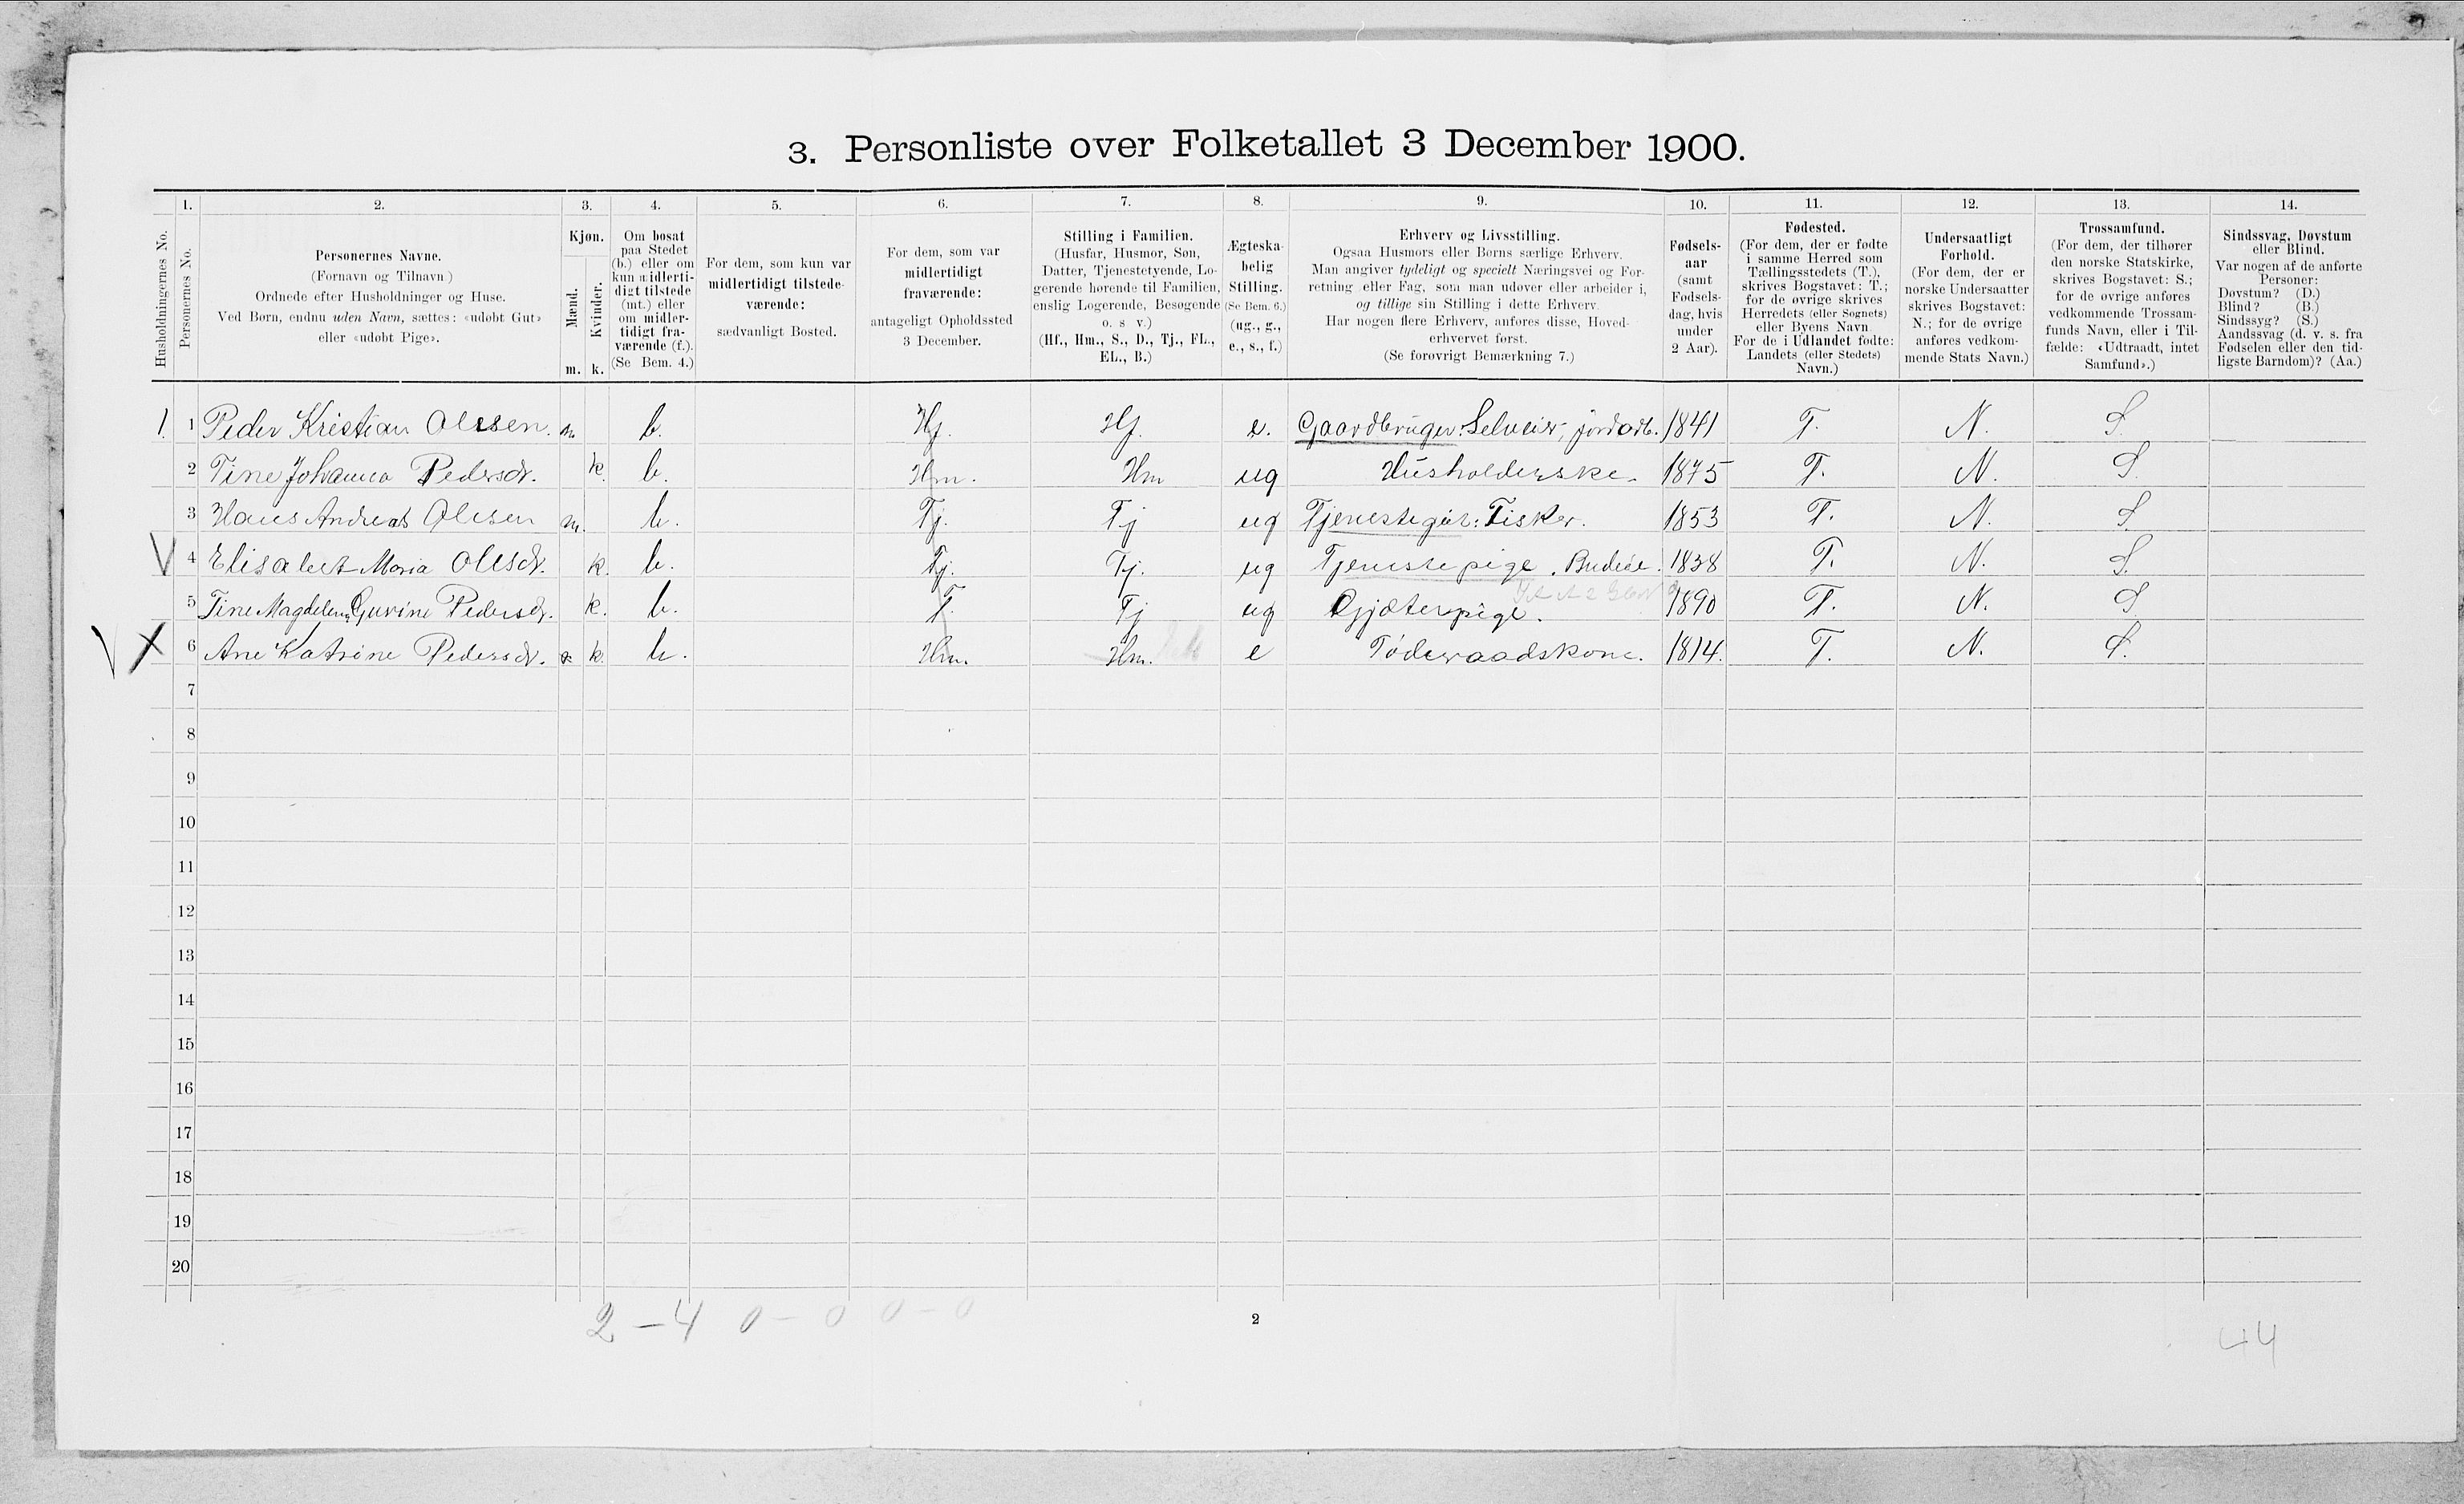 3. Personliste over Folketallet 3 December 1900.
Husholdningernes No.
1. Personernes No.
2. Personernes Navne.
(Fornavn og Tilnavn)
Ordnede efter Husholdninger og Huse.
Ved Børn, endnu uden Navn, sættes: «udøbt Gut»
eller «udøbt Pige».
3. Kjøn.
Mænd. m.
Kvinder. k.
4. Om bosat
paa Stedet
(b.) eller om
kun midlerti-
digt tilstede
(mt.) eller
om midler-
tidigt fra-
værende (f.).
(Se Bem. 4.)
5. For dem, som kun var
midlertidigt tilstede-
værende:
sædvanligt Bosted.
6. For dem, som var
midlertidigt
fraværende:
antageligt Opholdssted
3 December.
7. Stilling i Familien.
(Husfar, Husmor, Søn,
Datter, Tjenestetyende, Lo-
gerende hørende til Familien,
enslig Logerende, Besøgende
o. s v.)
(Hf., Hm., S., D., Tj., FL.,
EL., B.)
8. Ægteska-
belig
Stilling.
(Se Bem. 6.)
(ug., g.,
e., s., f.)
9. Erhverv og Livsstilling.
Ogsaa Husmors eller Børns særlige Erhverv.
Man angiver tydeligt og specielt Næringsvei og For-
retning eller Fag, som man udøver eller arbeider i,
og tillige sin Stilling i dette Erhverv.
Har nogen flere Erhverv, anføres disse, Hoved-
erhvervet først.
(Se forøvrigt Bemærkning 7.)
10. Fødsels-
aar
(samt
Fødsels-
dag, hvis
under
2 Aar).
11. Fødested.
(For dem, der er fødte
i samme Herred som
Tællingsstedets (T.),
skrives Bogstavet: T.;
for de øvrige skrives
Herredets (eller Sognets)
eller Byens Navn
For de i Udlandet fødte:
Landets (eller Stedets)
Navn.)
12. Undersaatligt
Forhold.
(For dem, der er
norske Undersaatter
skrives Bogstavet:
N.; for de øvrige
anføres vedkom-
mende Stats Navn.)
13. Trossamfund.
(For dem, der tilhører
den norske Statskirke,
skrives Bogstavet: S.;
for de øvrige anføres
vedkommende Trossam-
funds Navn, eller i Til-
fælde: «Udtraadt, intet
Samfund».)
14. Sindssvag, Døvstum
eller Blind.
Var nogen af de anførte
Personer:
Døvstum? (D.)
Blind? (B.)
Sindssyg? (S.)
Aandssvag (d. v. s. fra
Fødselen eller den tid-
ligste Barndom)? (Aa.)
1. 1 Peder Kristian Olssen. m b. Hf. Hf. e. Gaardbruger: Selveier, jordarb. 1841 T. N. S.
2 Tine Johanna Pedersdr. k. b. Hm. Hm ug Husholderske. 1875 T. N. S.
3 Hans Andreas Olssen m. b. Tj. Tj ug Tjenestegut: Fisker. 1853 T. N. S
4 Elisabet Maria Olsdr. k. b. Tj. Tj. ug Tjenestepige. Budeie. 1838 T. N. S.
5 Tine Magdelena Gurine Pedersdr. k. b. T. Tj ug Gjæterpige. 1890 T. N. S
6 Ane Katrine Pedersdr. k. b. Hm. Hm. e Føderaadskone. 1814. T. N. S.
7
8
9
10
11
12
13
14
15
16
17
18
19
20
2 - 4 0 - 0 0 - 0
2
44